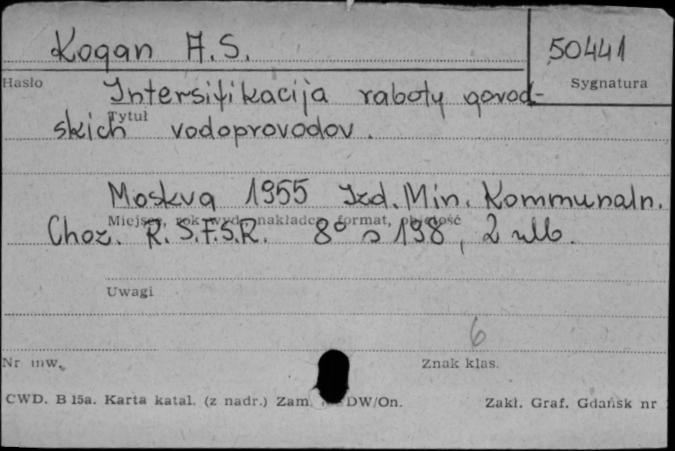 Kogan A.S.
50441
Hasło
Sygnatura
Intensifikacija raboty gorod-
Tytuł
skich vodoprovodov.
Moskva 1955 Izd. Min. Kommunaln.
Miejsce, rok wyd., nakładca, format, objętość
Choz. R.S.F.S.R. 8° s 198, 2 nlb.
Uwagi
6
Nr inw.
Znak klas.
CWD. B 15a. Karta katal. (z nadr.) Zam. DW/On.
Zakł. Graf. Gdańsk nr